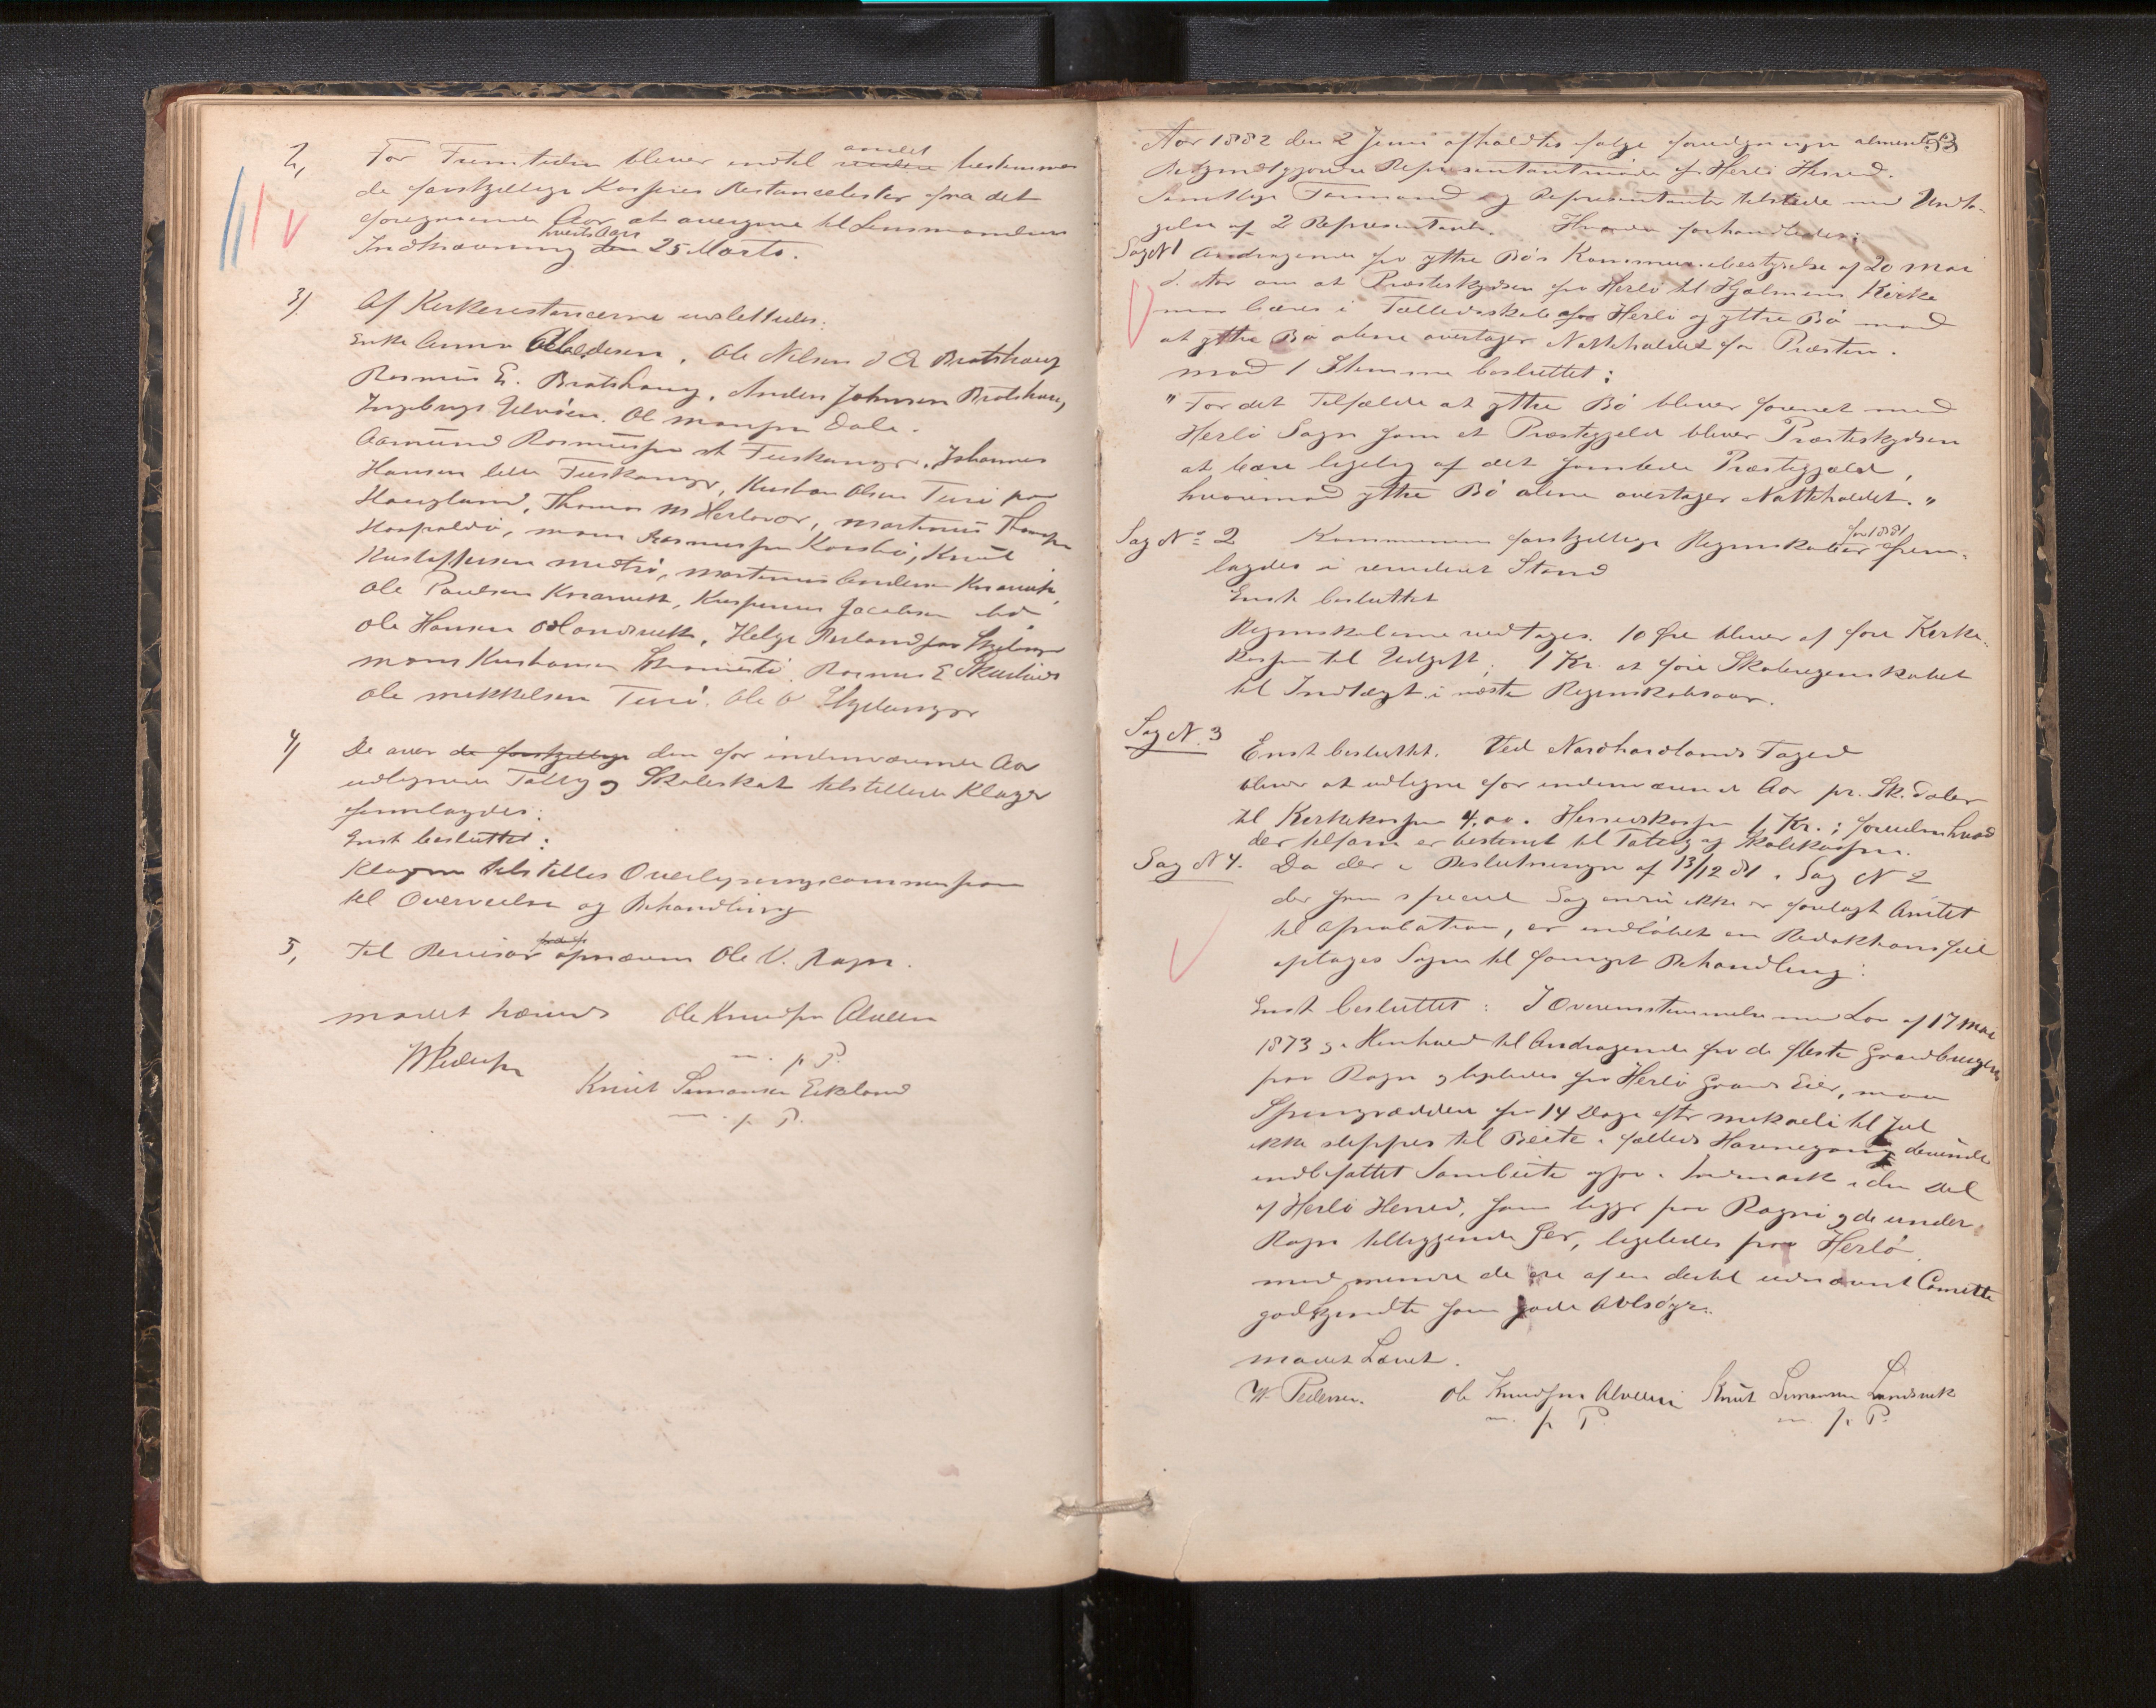 2,
For Fremtiden bliver indtil andet bestemmes
de forskjellige Kassers Restancelister fra det
foregaaende Aar at overgive til Lensmandens
Indkrævning hvert Aars 25 Marts.
3)
Af Kirkerestancerne udslettedes:
Enke Anna, Ole Nilsen Bratshaug
Rasmus E. Bratshaug, Anders Johnsen Bratshaug
Ingebrigt Ulvøen. Ole Monsen Dale.
Aamund Rasmussen st Fuskanger, Johannes
Hansen lille Fuskanger, Kristian Olsen Turø paa
Haugland, Thomas M Herløvær, Martinus Thomsen
Mons Rasmussen Korsø, Knut
Martinus Andersen Knarvik,
Ole Paulsen Knarvik, Jacobsen
Ole Hansen Landsvik, Helge Skjelanger
Mons Rasmus E
Ole Mikkelsen Turø. Ole O Skjelanger
4)
De over de forskjellige den for indeværende Aar
udlignede Fattig og Skoleskat tilstillede Klager
fremlagdes:
Enst besluttet:
Klagerne tilstilles Overligningscommissionen
til Overveielse og Behandling
5,
Til Revisor opnævnes Ole V. Ragn.
mødet hævet Ole Knudsen Alveen
WPedersen m. p P.
Knut Simonsen Eikeland
m. p P.
53
Aar 1882 den 2 Juni afholdtes ifølge foregaaende almindelig
Bekjendtgjørelse Repræsentantmøde for Herlø Herred.
Samtlige Formænd og Repræsentanter tilstede med Undta-
gelse af 2 Repræsentanter. Hvorda forhandledes:
Sag N 1 Andragende fra yttre Bø's Kommunebestyrelse af 20 Mai
d. Aar om at Præsteskydsen fra Herlø til Hjelmens Kirke
maa bæres i Fælledsskab for Herlø og yttre Bø mod
at yttre Bø alene overtager Natteholdet for Præsten.
mod 1 Stemme besluttet:
" For det Tilfælde at yttre Bø bliver forenet med
Herlø Sogn som et Præstegjeld bliver Præsteskydsen
at bære ligelig af det samlede Præstegjæld,
hvorimod yttre Bø alene overtager Natteholdet. "
Sag No 2 Kommunens forskjellige Regnskaber for 1881 frem-
lagdes i revideret Stand
Enst besluttet
Regnskaberne vedtages. 10 Øre bliver at føre Kirke-
kassen til Udgift; 1 Kr. at føre Skoleregnskabet
til Indtægt i næste Regnskabsaar.
Sag N. 3
Enst besluttet. Ved Nordhordlands Foged
bliver at udligne for indeværende Aar pr. Sk. Daler
til Kirkekassen 4,00. Herredskassen 1 Kr.; foruden hvad
der tilforn er bestemt til Fattig og Skolekassen.
Sag N 4. Da der i Beslutningen af 13/12 81, Sag N 2
der som speciel Sag endnu ikke er forelagt Amtet
til Aprobation, er indløbet en Redaktionsfeil
optages Sagen til fornyet Behandling:
Enst besluttet: I Overensstemmelse med Lov af 17 Mai
1873 og i Henhold til Andragende fra de fleste Gaardbrugere
paa Ragn og ligeledes fra Herlø Gaards Eier, maa
Springvædden fra 14 Dage efter Mikaeli til Jul
ikke slippes til Beite i fælleds Havnegang derunder
indbefattet Sambeite ogsaa i Indmark i den Del
af Herlø Herred, som ligger paa Ragnø og de under
Ragn tilliggende Øer, ligeledes paa Herlø
med mindre de ere af en dertil udnævnt Comitte
godkjendte som gode Avlsdyr.
mødet Hævet.
W. Pedersen. Ole Knudsen Alveen Knut Simonsen Landsvik
m. p P. m. p P.